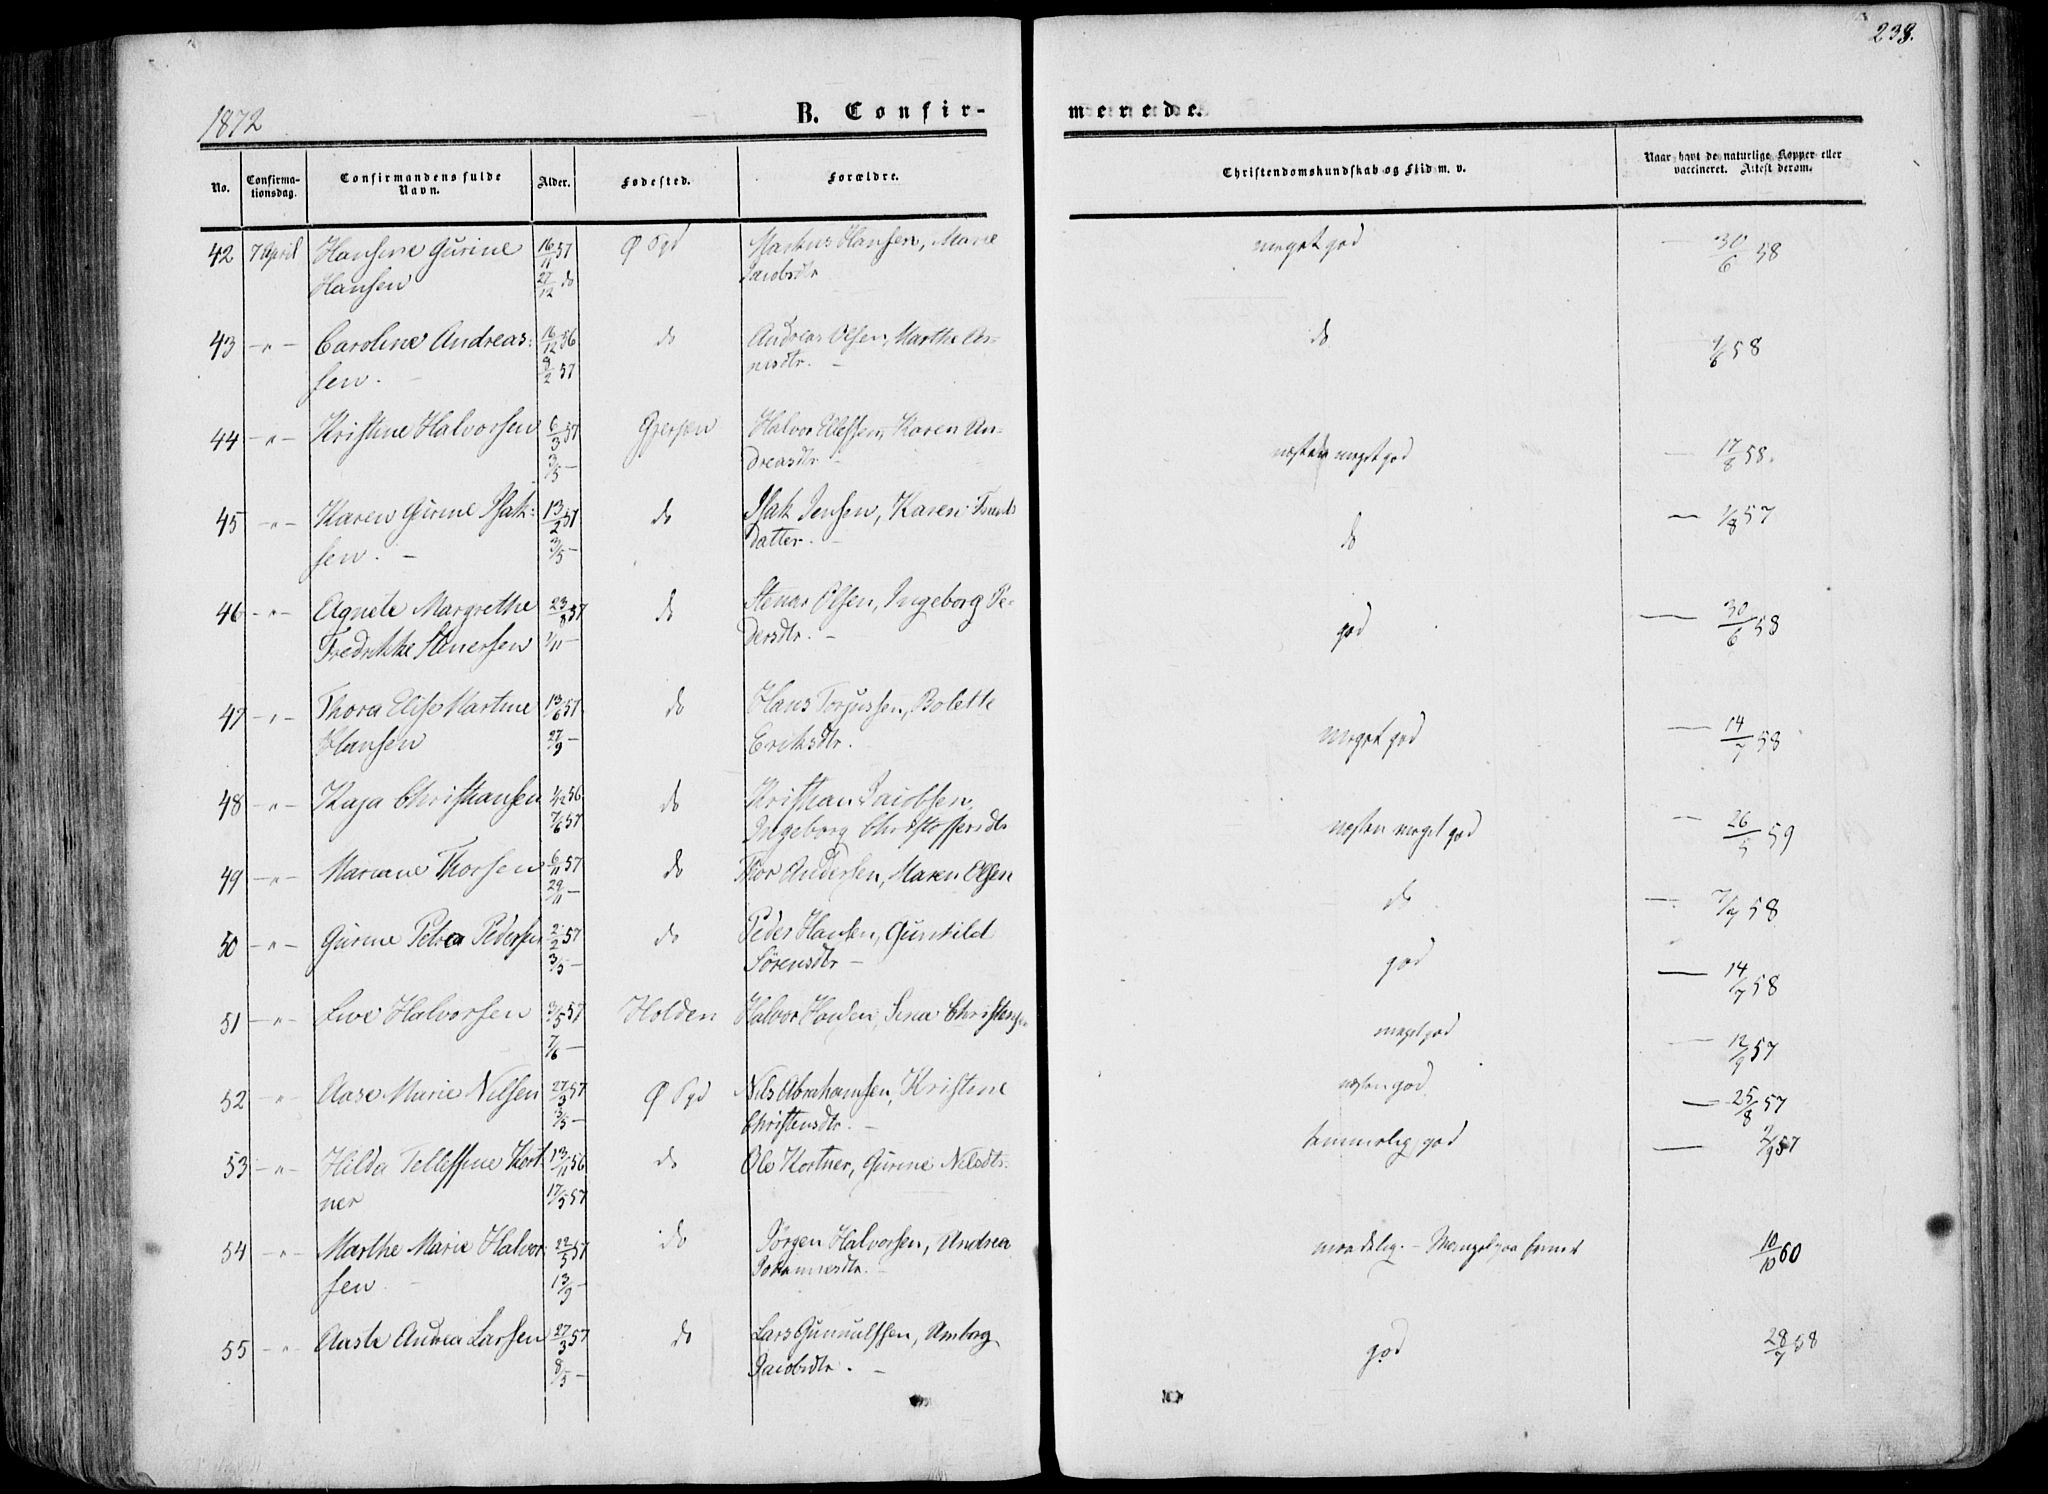 238.
1872
B. Confir-
merede.
No.
Confirma-
tionsdag.
Confirmandens fulde
Navn.
Alder.
Fødested.
Forældre.
Christendomskundskab og Flid m. v.
Naar havt de naturlige Kopper eller
vaccineret. Attest derom.
42 7 April Hansine Gurine 16/11 57 Ø Sgd Markus Hansen, Marie meget god — 30/6 58
Hansen 27/12 do Jacobsdtr
43 -"- Caroline Andreas: 16/12 56 do Andreas Olsen, Marthe do 1/6 58
sen. - 8/2 57
44 -"- Kristine Halvorsen 6/3 57 Gjerpen Halvor Karen An- næsten meget god — 17/8 58.
3/5 - dreasdtr -
45 -"- Karen Gurine Isak: 13/2 57 do Isak Jensen, Karen do — 1/8 57
sen. - 3/5 - datter. -
46 -"- Agnete Margrethe 23/8 57 do Stenar Olsen, Ingeborg Pe- god — 30/6 58
Fredrikke Stenersen 1/11 - dersdtr. -
47 -"- Thora Elise Martine 13/6 57 do Hans Torjussen, Bolette meget god — 14/7 58
Hansen 27/9 - Eriksdtr.
48 -"- Kaja Christiansen 4/12 56 do Kristian Jacobsen, næsten meget god — 26/5 59
7/6 57 Ingeborg Christoffersdtr
49 -"- Mariane Thorsen 6/11 57 do Thor Andersen, Maren Olsen do — 7/7 58
29/11 -
50 -"- Gurine Petra Pedersen 2/2 57 do Peder Hansen, Gunhild god — 14/7 58
3/5 - Sörensdtr -
51 -"- Live Halvorsen 3/5 57 Holden Halvor Christensen meget god — 12/9 57
7/6 -
52 -"- Aase Marie Nilsen 27/3 57 Ø Sgd Nils Abrahamsen, Kristine næsten god — 25/8 57
3/5 - Christensdtr. -
53 -"- Hilda Tellefine Kort 13/11 56 do Ole Kortner, Gurine Nilsdtr. temmelig god — 2/9 57
ner 17/5 57
54 -"- Marthe Marie Halvor- 22/5 57 do Jörgen Halvorsen, Andrea maadelig. - Mangel paa 10/10 60
sen - 13/9 - Johannesdtr. -
55 -"- Aaste Andrea Larsen 27/3 57 do Lars Gunnulfsen, Amborg god 28/7 58
8/5 - Jacobsdtr. -